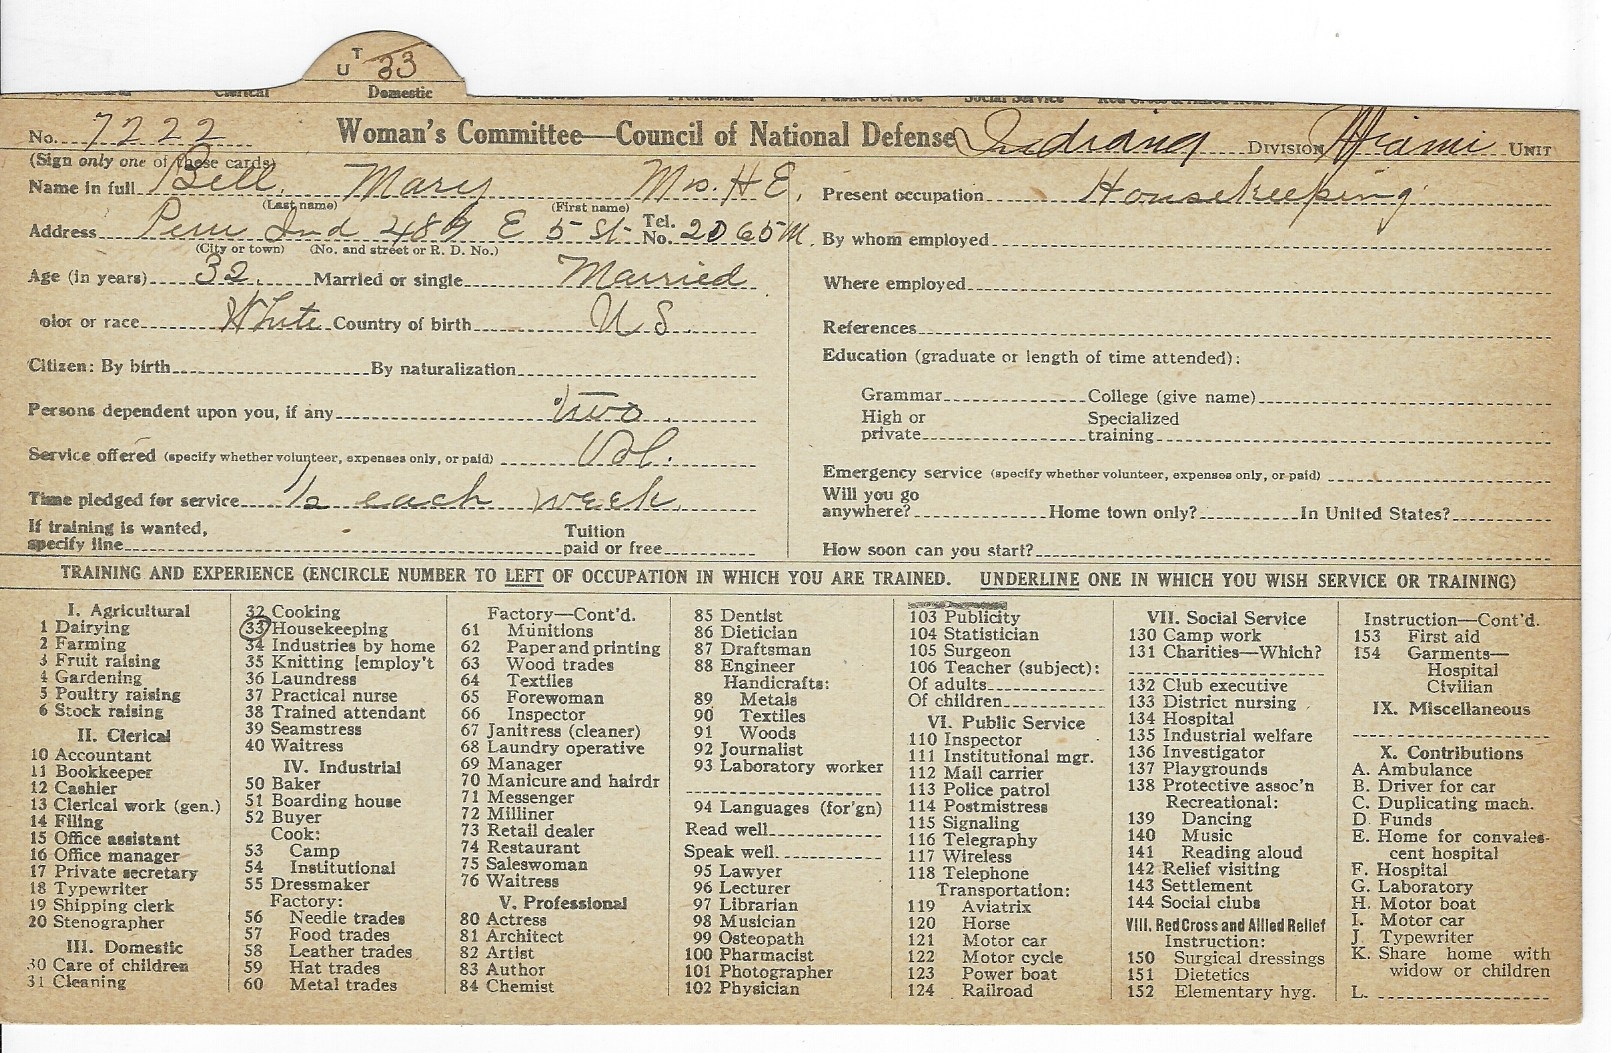 T
U 33
Domestic
No. 7222 Woman's Committee—Council of National Defense Indiana DIVISION Miami UNIT
(Sign only one of these cards)
Name in full Bell, Mary Mrs. H E.
(Last name) (First name)
Address Peru Ind E 5 St. Tel. No. 2065M
(City or town) (No. and street or R. D. No.)
Age (in years) 32. Married or single Married
olor or race White Country of birth U S.
Citizen: By birth By naturalization
Persons dependent upon you, if any two.
Service offered (specify whether volunteer, expenses only, or paid) Vol.
Time pledged for service 1/2 each week.
If training is wanted, Tuition
specify line paid or free
Present occupation Housekeeping
By whom employed
Where employed
References
Education (graduate or length of time attended):
Grammar College (give name)
High or Specialized
private training
Emergency service (specify whether volunteer, expenses only, or paid)
Will you go
anywhere? Home town only? In United States?
How soon can you start?
TRAINING AND EXPERIENCE (ENCIRCLE NUMBER TO LEFT OF OCCUPATION IN WHICH YOU ARE TRAINED. UNDERLINE ONE IN WHICH YOU WISH SERVICE OR TRAINING)
I. Agricultural
1 Dairying
2 Farming
3 Fruit raising
4 Gardening
5 Poultry raising
6 Stock raising
II. Clerical
10 Accountant
11 Bookkeeper
12 Cashier
13 Clerical work (gen.)
14 Filing
15 Office assistant
16 Office manager
17 Private secretary
18 Typewriter
19 Shipping clerk
20 Stenographer
III. Domestic
30 Care of children
31 Cleaning
32 Cooking
33 Housekeeping
34 Industries by home
35 Knitting [employ't
36 Laundress
37 Practical nurse
38 Trained attendant
39 Seamstress
40 Waitress
IV. Industrial
50 Baker
51 Boarding house
52 Buyer
Cook:
53 Camp
54 Institutional
55 Dressmaker
Factory:
56 Needle trades
57 Food trades
58 Leather trades
59 Hat trades
60 Metal trades
Factory—Cont'd.
61 Munitions
62 Paper and printing
63 Wood trades
64 Textiles
65 Forewoman
66 Inspector
67 Janitress (cleaner)
68 Laundry operative
69 Manager
70 Manicure and hairdr
71 Messenger
72 Milliner
73 Retail dealer
74 Restaurant
75 Saleswoman
76 Waitress
V. Professional
80 Actress
81 Architect
82 Artist
83 Author
84 Chemist
85 Dentist
86 Dietician
87 Draftsman
88 Engineer
Handicrafts:
89 Metals
90 Textiles
91 Woods
92 Journalist
93 Laboratory worker
94 Languages (for'gn)
Read well
Speak well
95 Lawyer
96 Lecturer
97 Librarian
98 Musician
99 Osteopath
100 Pharmacist
101 Photographer
102 Physician
103 Publicity
104 Statistician
105 Surgeon
106 Teacher (subject):
Of adults
Of children
VI. Public Service
110 Inspector
111 Institutional mgr.
112 Mail carrier
113 Police patrol
114 Postmistress
115 Signaling
116 Telegraphy
117 Wireless
118 Telephone
Transportation:
119 Aviatrix
120 Horse
121 Motor car
122 Motor cycle
123 Power boat
124 Railroad
VII. Social Service
130 Camp work
131 Charities—Which?
132 Club executive
133 District nursing
134 Hospital
135 Industrial welfare
136 Investigator
137 Playgrounds
138 Protective assoc'n
Recreational:
139 Dancing
140 Music
141 Reading aloud
142 Relief visiting
143 Settlement
144 Social clubs
VIII. Red Cross and Allied Relief
Instruction:
150 Surgical dressings
151 Dietetics
152 Elementary hyg.
Instruction—Cont'd.
153 First aid
154 Garments—
Hospital
Civilian
IX. Miscellaneous
X. Contributions
A. Ambulance
B. Driver for car
C. Duplicating mach.
D. Funds
E. Home for convales-
cent hospital
F. Hospital
G. Laboratory
H. Motor boat
I. Motor car
J Typewriter
K. Share home with
widow or children
L.